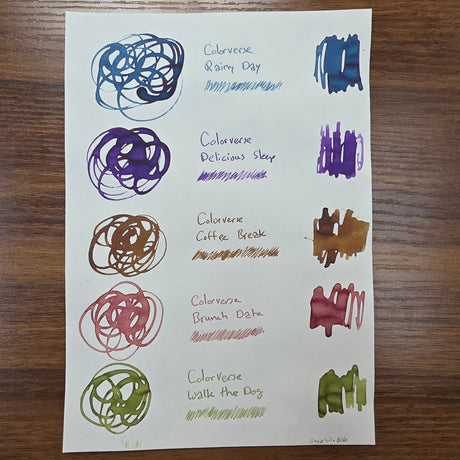 Colorverse
Rainy Day
Colorverse
Delicious Sleep
Colorverse
Coffee Break
Colorverse
Brunch Date
Colorverse
Walk the Dog